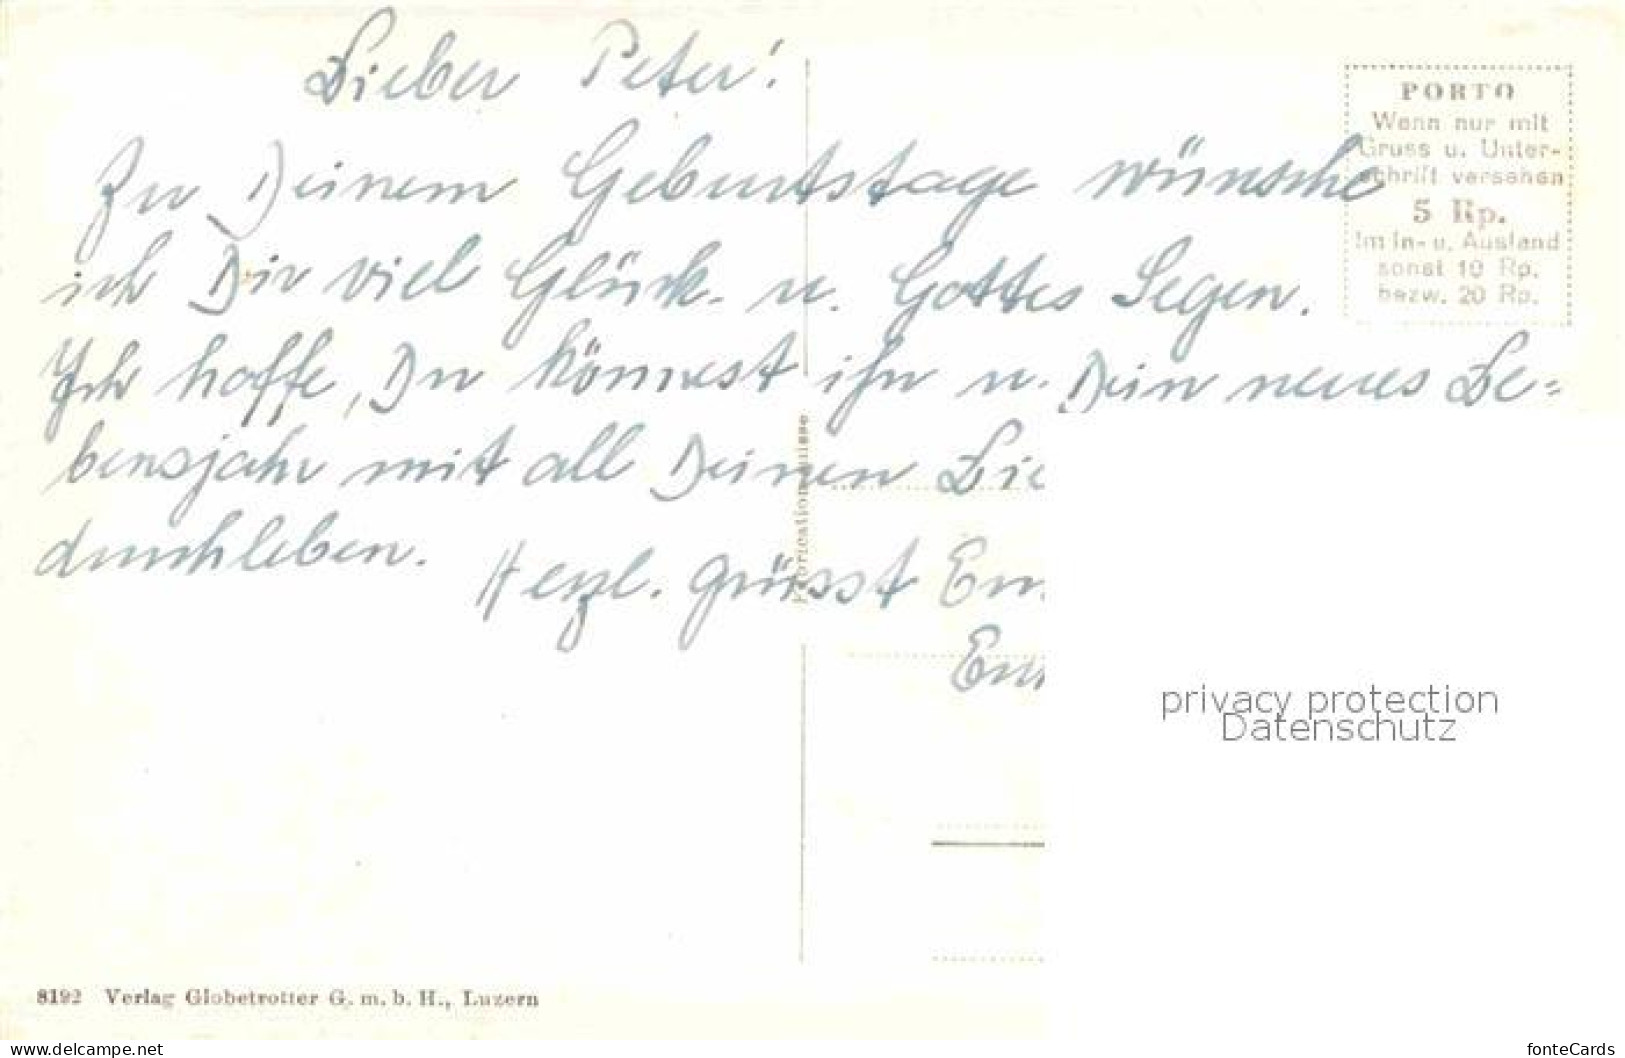 Lieber Peter!
Zu Deinem Geburtstage wünsche
ich Dir viel Glück u. Gottes Segen.
Ich hoffe, Du könnest ihn u. Dein neues Le=
bensjahr mit all Deinen Lie
durchleben.
Herzl. grüsst
PORTO
Wenn nur mit
Gruss u. Unter-
schrift versehen
5 Rp.
Im In- u. Ausland
sonst 10 Rp.
bezw. 20 Rp.
Fabrication suisse
privacy protection
Datenschutz
8192 Verlag Globetrotter G. m. b. H., Luzern
www.delcampe.net
fonteCards